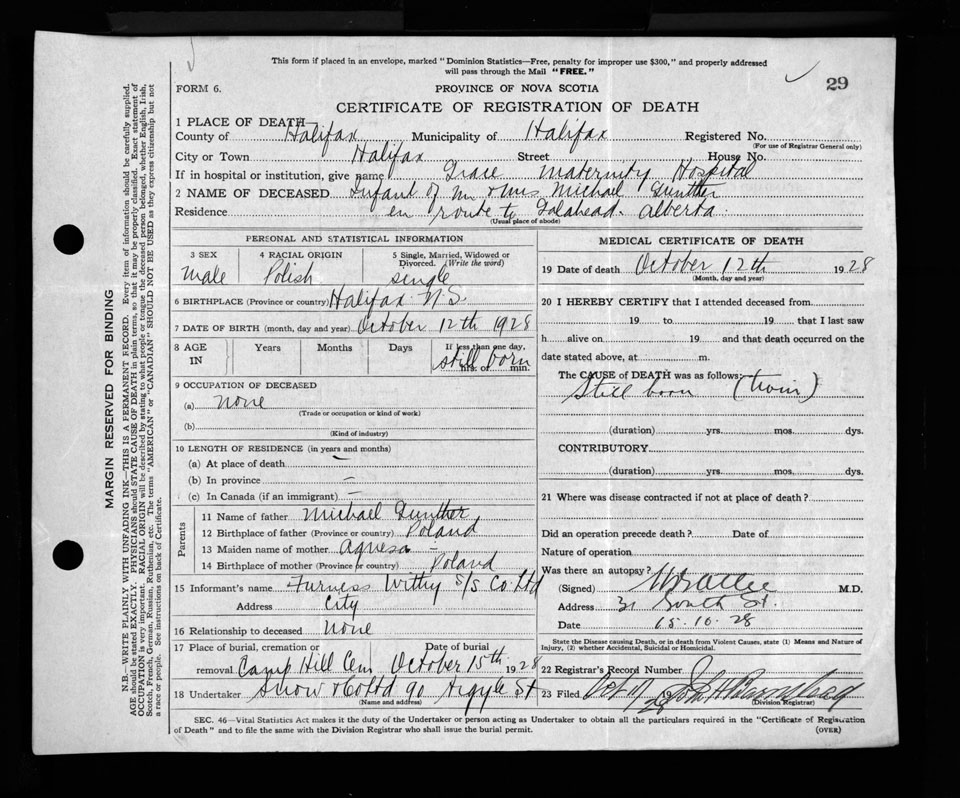 This form if placed in an envelope, marked "Dominion Statistics—Free, penalty for improper use $300," and properly addressed
will pass through the Mail "FREE."
29
FORM 6.
PROVINCE OF NOVA SCOTIA
CERTIFICATE OF REGISTRATION OF DEATH
1 PLACE OF DEATH
County of Halifax Municipality of Halifax Registered No.
(For use of Registrar General only)
City or Town Halifax Street House No.
If in hospital or institution, give name Grace Maternity Hospital
2 NAME OF DECEASED Infant of Mr & Mrs Michael Gunther
Residence en route to Galahead. Alberta.
(Usual place of abode)
PERSONAL AND STATISTICAL INFORMATION
3 SEX 4 RACIAL ORIGIN 5 Single, Married, Widowed or
Divorced. (Write the word)
Male Polish single
6 BIRTHPLACE (Province or country) Halifax N.S.
7 DATE OF BIRTH (month, day and year) October 12th 1928
8 AGE IN Years Months Days If less than one day,
still born
hrs. or min.
9 OCCUPATION OF DECEASED
(a) none
(Trade or occupation or kind of work)
(b)
(Kind of industry)
10 LENGTH OF RESIDENCE (in years and months)
(a) At place of death
(b) In province –
(c) In Canada (if an immigrant) –
Parents
11 Name of father Michael Gunther
12 Birthplace of father (Province or country) Poland
13 Maiden name of mother Agnesa –
14 Birthplace of mother (Province or country) Poland
15 Informant's name Furness Withy S/S Co Ltd
Address City
16 Relationship to deceased none
17 Place of burial, cremation or Date of burial
removal Camp Hill Cem October 15th 1928
18 Undertaker Snow & Co Ltd 90 Argyle St
(Name and address)
MEDICAL CERTIFICATE OF DEATH
19 Date of death October 12th 1928
(Month, day and year)
20 I HEREBY CERTIFY that I attended deceased from
19 to 19 that I last saw
h alive on 19 and that death occurred on the
date stated above, at m.
The CAUSE of DEATH was as follows:
Still born (twin)
(duration) yrs. mos. dys.
CONTRIBUTORY
(duration) yrs. mos. dys.
21 Where was disease contracted if not at place of death?
Did an operation precede death? Date of
Nature of operation
Was there an autopsy?
(Signed) M.D.
Address 31 South St.
Date 15.10.28
State the Disease causing Death, or in death from Violent Causes, state (1) Means and Nature of
Injury, (2) whether Accidental, Suicidal or Homicidal.
22 Registrar's Record Number
23 Filed Oct 17 1928 John H Barnstead
(Division Registrar)
SEC. 46—Vital Statistics Act makes it the duty of the Undertaker or person acting as Undertaker to obtain all the particulars required in the "Certificate of Registration
of Death" and to file the same with the Division Registrar who shall issue the burial permit.
(OVER)
MARGIN RESERVED FOR BINDING
N.B.—WRITE PLAINLY WITH UNFADING INK—THIS IS A PERMANENT RECORD. Every item of information should be carefully supplied.
AGE should be stated EXACTLY. PHYSICIANS should STATE CAUSE OF DEATH in plain terms, so that it may be properly classified. Exact statement of
OCCUPATION is very important. RACIAL ORIGIN will be described by stating to what people or tongue the deceased person belonged, whether English, Irish,
Scotch, French, German, Russian, Ruthenian, etc. The terms "AMERICAN" or "CANADIAN" SHOULD NOT BE USED as they express citizenship but not
a race or people. See instructions on back of Certificate.